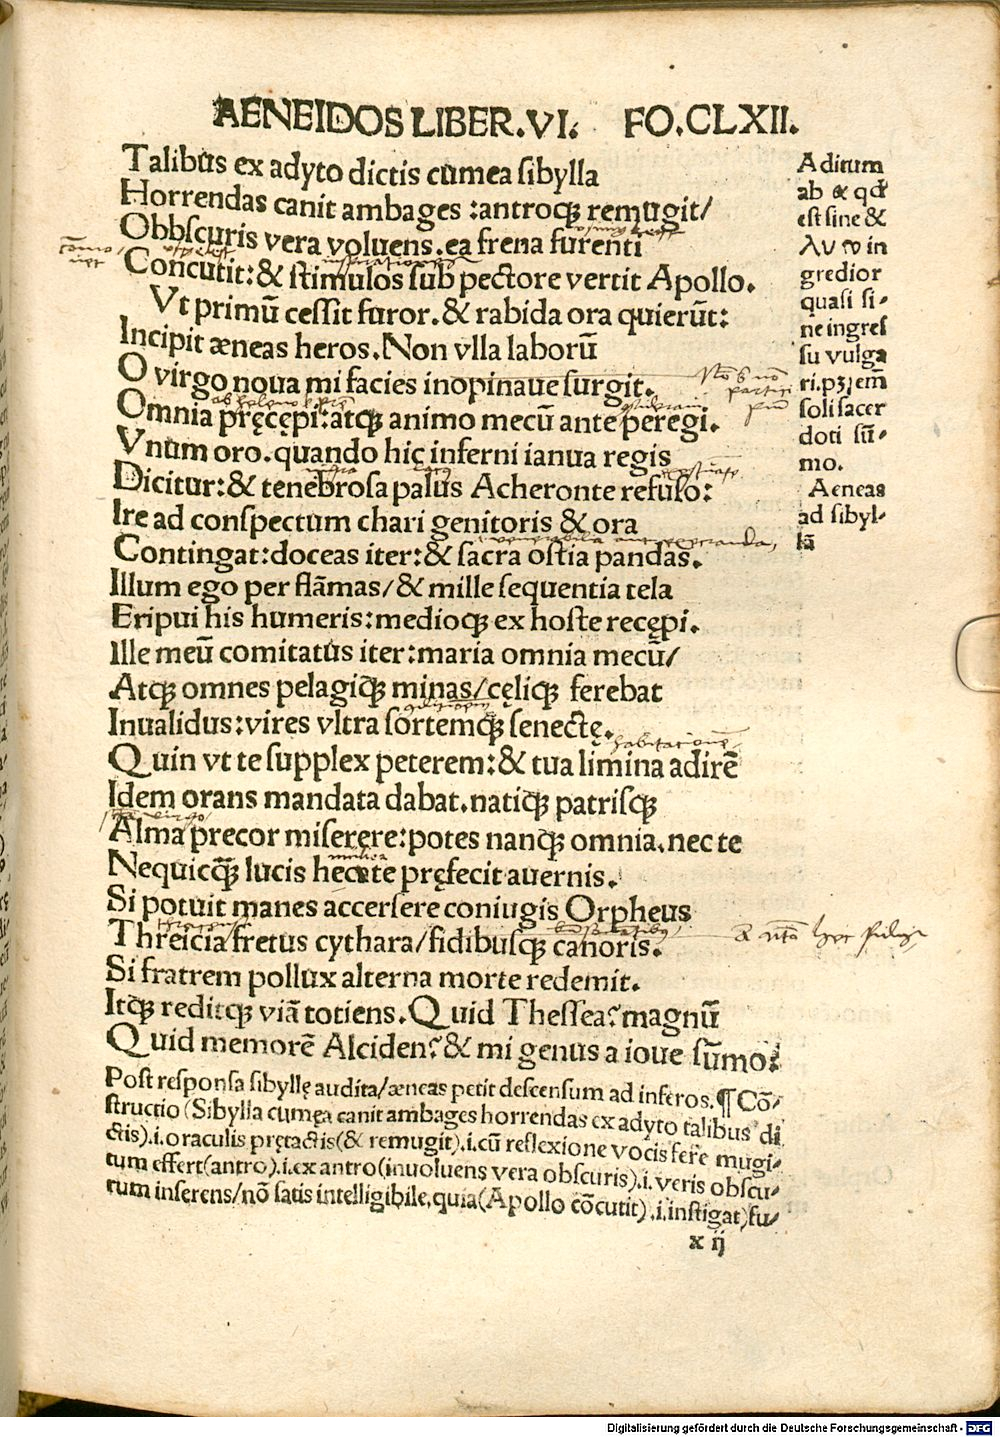 AENEIDOS LIBER.VI. FO.CLXII.
Talibus ex adyto dictis cumea sibylla
Horrendas canit ambages :antroqꝫ remugit/
Obbscuris vera voluens.ea frena furenti
Concutit:& stimulos sub pectore vertit Apollo.
Vt primū cessit furor.& rabida ora quierūt:
Incipit æneas heros.Non vlla laborū
O virgo noua mi facies inopinaue surgit.
Omnia pręcępi:atqꝫ animo mecū ante peregi.
Vnum oro.quando hic inferni ianua regis
Dicitur:& tenebrosa palus Acheronte refuso:
Ire ad conspectum chari genitoris & ora
Contingat:doceas iter:& sacra ostia pandas.
Illum ego per flāmas/& mille sequentia tela
Eripui his humeris:medioqꝫ ex hoste recępi.
Ille meū comitatus iter:maria omnia mecū/
Atqꝫ omnes pelagiqꝫ minas/cęliqꝫ ferebat
Inualidus:vires vltra sortemqꝫ senectę.
Quin vt te supplex peterem:& tua limina adirē
Idem orans mandata dabat.natiqꝫ patrisqꝫ
Alma precor miserere:potes nanqꝫ omnia.nec te
Nequicqꝫ̄ lucis hecate pręfecit auernis.
Si potuit manes accersere coniugis Orpheus
Threicia fretus cythara/fidibusqꝫ canoris.
Si fratrem pollux alterna morte redemit.
Itqꝫ reditqꝫ viā totiens.Quid Thessea?magnū
Quid memorē Alciden?& mi genus a ioue sūmo?
Aditum
ab & qd
est sine &
λυω in
gredior
quasi si-
ne ingres
su vulga
ri.pꝫ,em̄
soli sacer
doti sū-
mo.
Aeneas
ad sibyl-
lā
ab heleno
habitationē
Post responsa sibyllę audita/æneas petit descensum ad inferos.¶Cō-
structio(Sibylla cumęa canit ambages horrendas ex adyto talibus di
ctis).i.oraculis prętactis(& remugit).i.cū reflexione vocis fere mugi-
tum effert(antro).i.ex antro(inuoluens vera obscuris).i.veris obscu-
rum inserens/nō satis intelligibile,quia(Apollo cōcutit).i.instigat)fu-
x ij
Digitalisierung gefördert durch die Deutsche Forschungsgemeinschaft - DFG